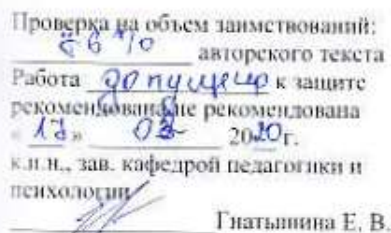 Проверка на объем заимствований:
56 % авторского текста
Работа допущена к защите
рекомендована/не рекомендована
« 17 » 02 2020г.
к.п.н., зав. кафедрой педагогики и
психологии
Гнатышина Е. В.